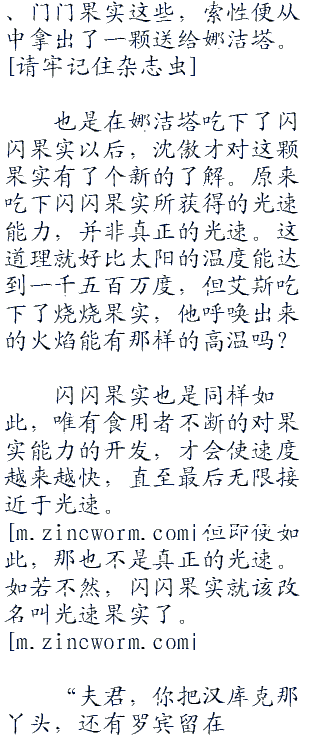 、门门果实这些，索性便从
中拿出了一颗送给娜洁塔。
[请牢记住杂志虫]
也是在娜洁塔吃下了闪
闪果实以后，沈傲才对这颗
果实有了个新的了解。原来
吃下闪闪果实所获得的光速
能力，并非真正的光速。这
道理就好比太阳的温度能达
到一千五百万度，但艾斯吃
下了烧烧果实，他呼唤出来
的火焰能有那样的高温吗？
闪闪果实也是同样如
此，唯有食用者不断的对果
实能力的开发，才会使速度
越来越快，直至最后无限接
近于光速。
[m.zincworm.com|但即使如
此，那也不是真正的光速。
如若不然，闪闪果实就该改
名叫光速果实了。
[m.zincworm.com|
“夫君，你把汉库克那
丫头，还有罗宾留在